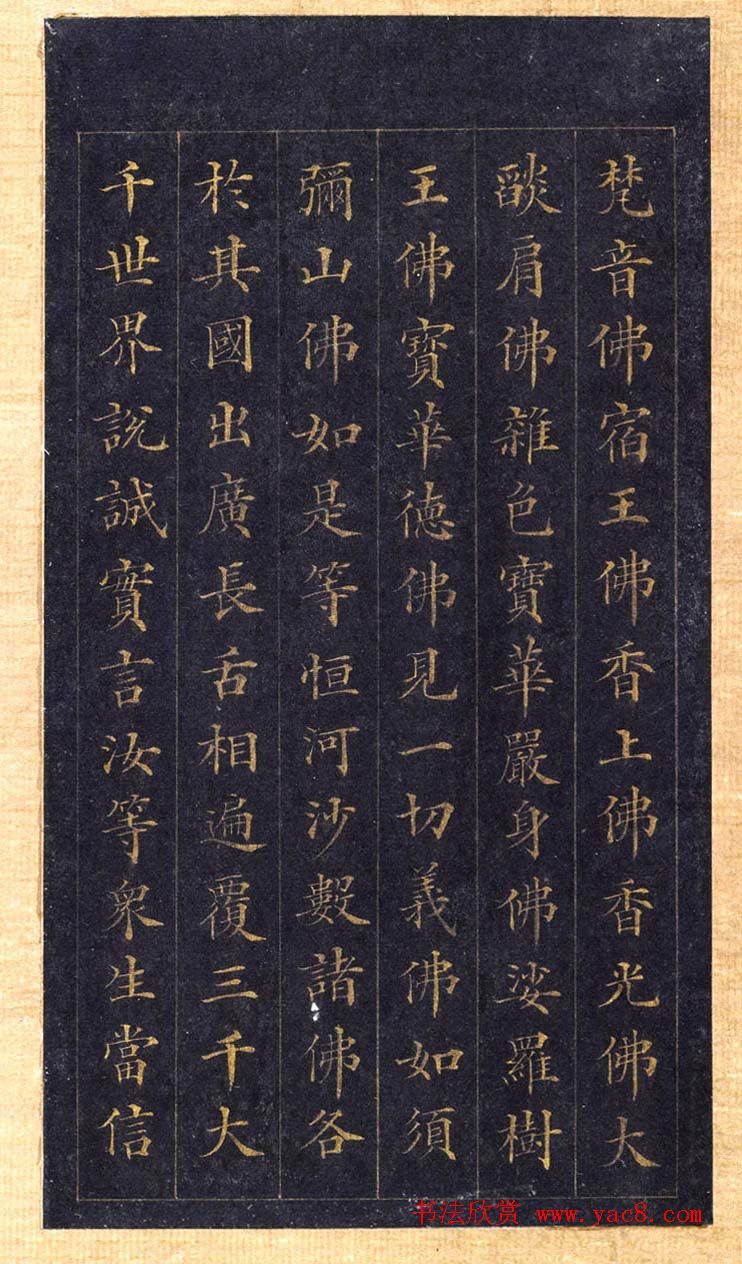 梵音佛宿王佛香上佛香光佛大
燄肩佛雜色寶華嚴身佛娑羅樹
王佛寶華德佛見一切義佛如須
彌山佛如是等恒河沙數諸佛各
於其國出廣長舌相遍覆三千大
千世界說誠實言汝等衆生當信
书法欣赏 www.yac8.com